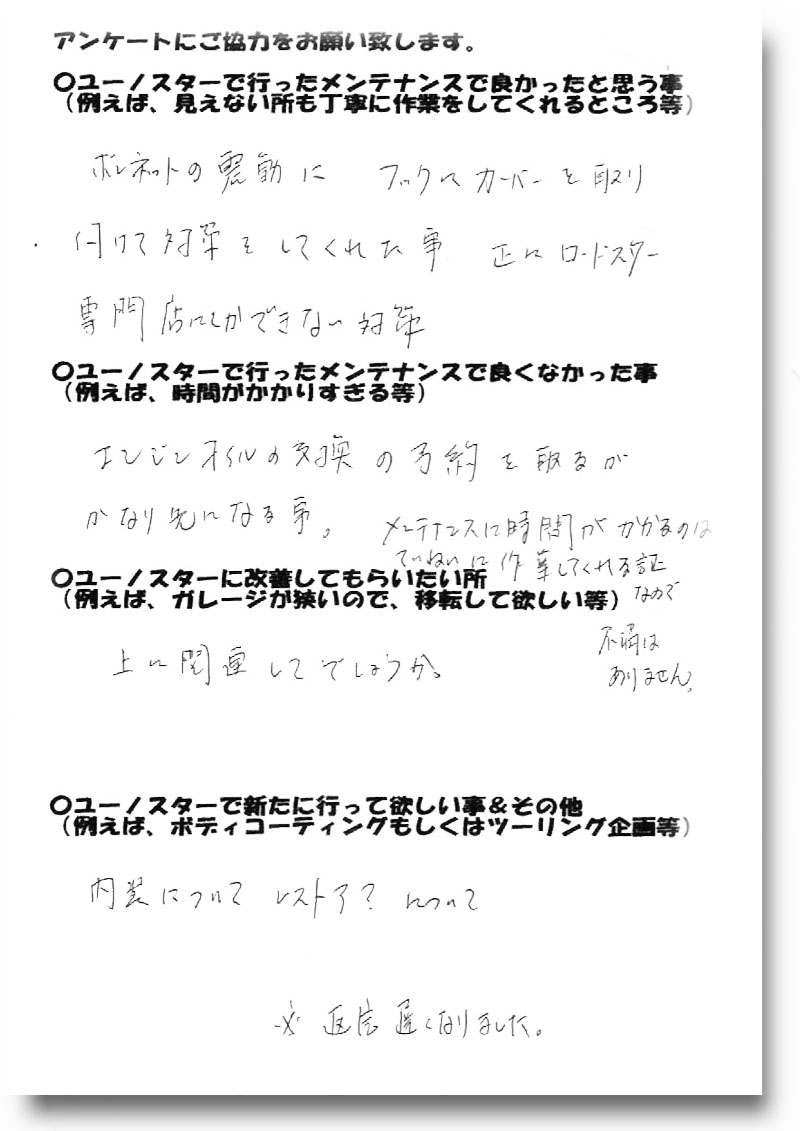 アンケートにご協力をお願い致します。
〇ユーノスターで行ったメンテナンスで良かったと思う事
（例えば、見えない所も丁寧に作業をしてくれるところ等）
ボンネットの震動に フックにカバーを取り
付けて対策をしてくれた事 正にロードスター
専門店にしかできない対策
〇ユーノスターで行ったメンテナンスで良くなかった事
（例えば、時間がかかりすぎる等）
エンジンオイルの交換の予約を取るが
かなり先になる事。
メンテナンスに時間がかかるのは
ていねいに作業してくれる証
なので
不満は
ありません。
〇ユーノスターに改善してもらいたい所
（例えば、ガレージが狭いので、移転して欲しい等）
上に関連してでしょうか。
〇ユーノスターで新たに行って欲しい事＆その他
（例えば、ボディコーティングもしくはツーリング企画等）
内装について レストア？について
※返信遅くなりました。